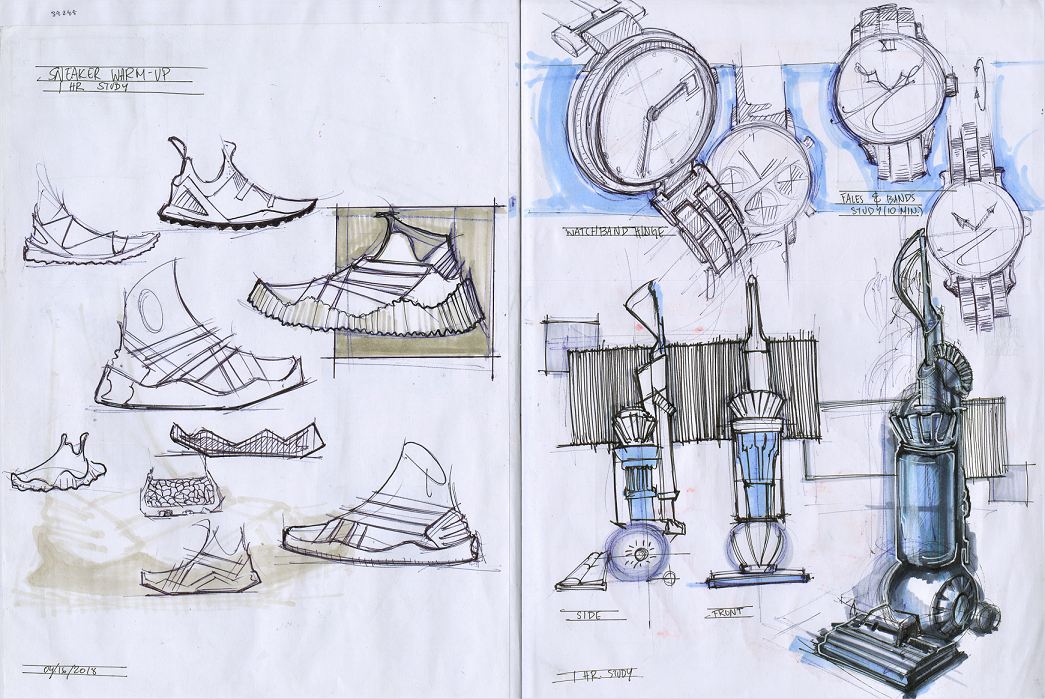 SNEAKER WARM-UP
1 HR. STUDY
09/16/2018
WATCHBAND HINGE
FACES & BANDS
STUDY (10 MIN)
SIDE
FRONT
1 HR. STUDY